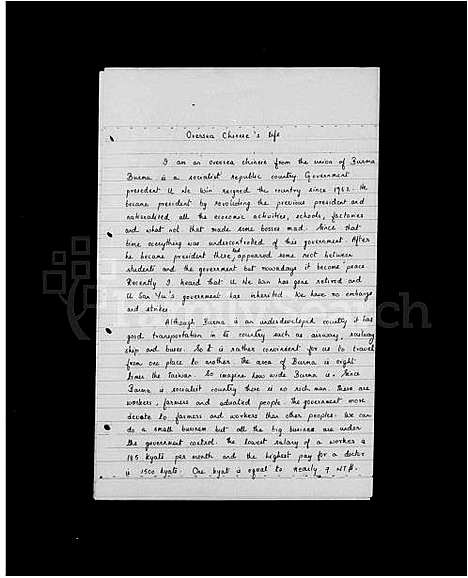 Oversea Chinese's life
I am an oversea chinese from the union of Burma
Burma is a socialist republic country. Government
president U Ne Win reigned the country since 1962. He
became president by revoluting the previous president and
nationalized all the economic activities, schools, factories
and what not that made some bosses mad. Since that
time everything was undercontroled of this government. After
he became president there, appeared some riot between
students and the government but nowadays it become peace
Recently I heard that U Ne Win has gone retired and
U San Yu's government has inherited. We have no embargo
and strikes
Although Burma is an underdeveloped country it has
good transportation in its country such as airway, railway
ship and buses. So it is rather convinient for us to travel
from one place to another. The area of Burma is eight-
times the Taiwan. So imagine how wide Burma is. Since
Burma is socialist country there is no rich man. There are
workers, farmers and educated people. The government more
devote to farmers and workers than other peoples. We can
do a small business but all the big business are under
the government control. The lowest salary of a worker is
195 kyats per month and the highest pay for a doctor
is 1500 kyats. One kyat is equal to nearly 7 NT$.